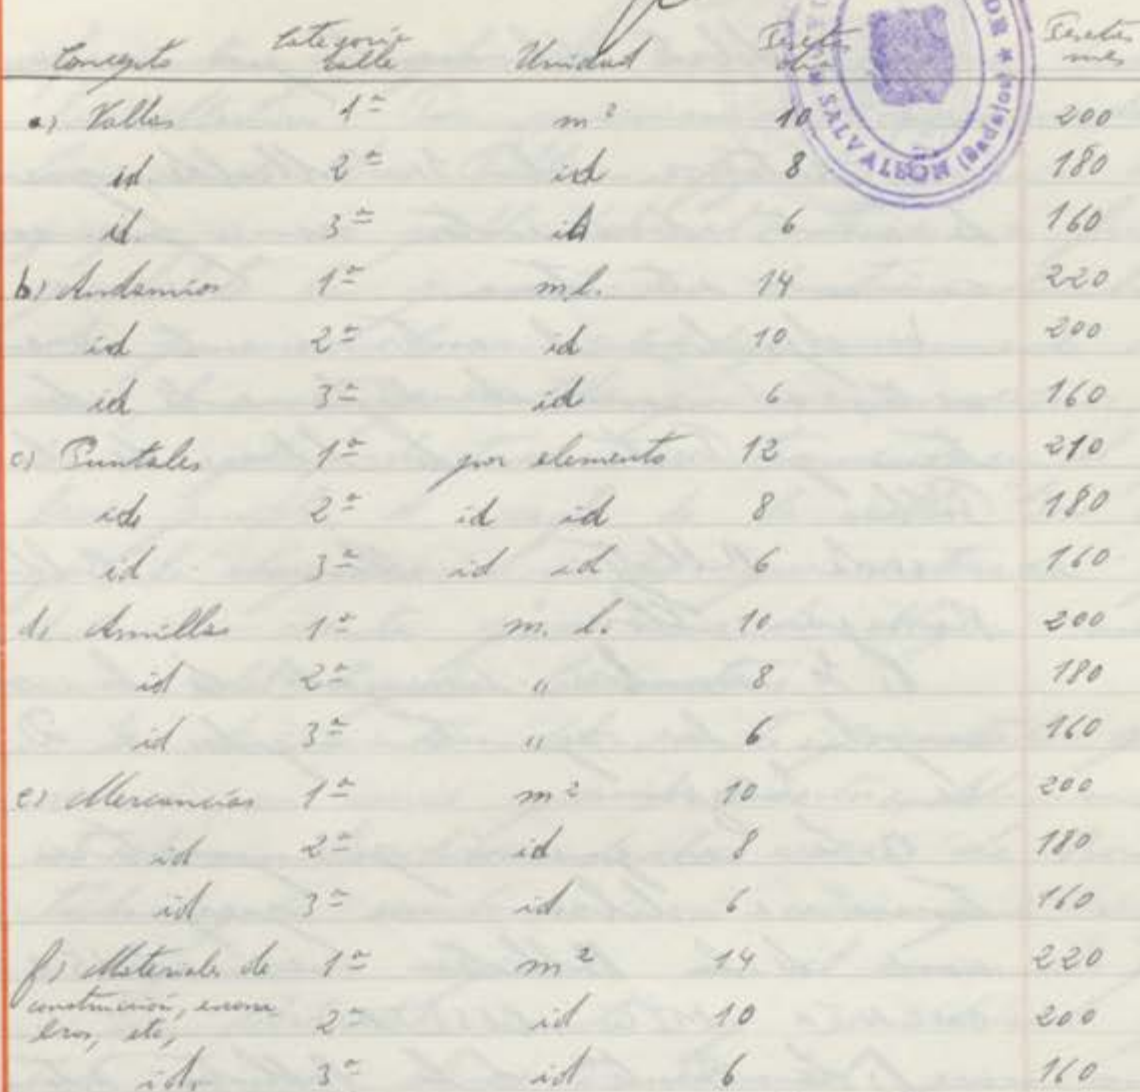 Concepto Categoría calle Unidad Pesetas día Pesetas mes
a) Vallas 1ª m² 10 200
id. 2ª id 8 180
id. 3ª id 6 160
b) Andamios 1ª m.l. 14 220
id 2ª id 10 200
id 3ª id 6 160
c) Puntales 1ª por elemento 12 210
id. 2ª id id 8 180
id 3ª id id 6 160
d) Asnillas 1ª m. l. 10 200
id 2ª " 8 180
id 3ª " 6 160
e) Mercancías 1ª m² 10 200
id 2ª id 8 180
id 3ª id. 6 160
f) Materiales de 1ª m² 14 220
construcción, escom
bros, etc, 2ª id 10 200
id. 3ª id 6 160
SALVALEÓN (Badajoz)